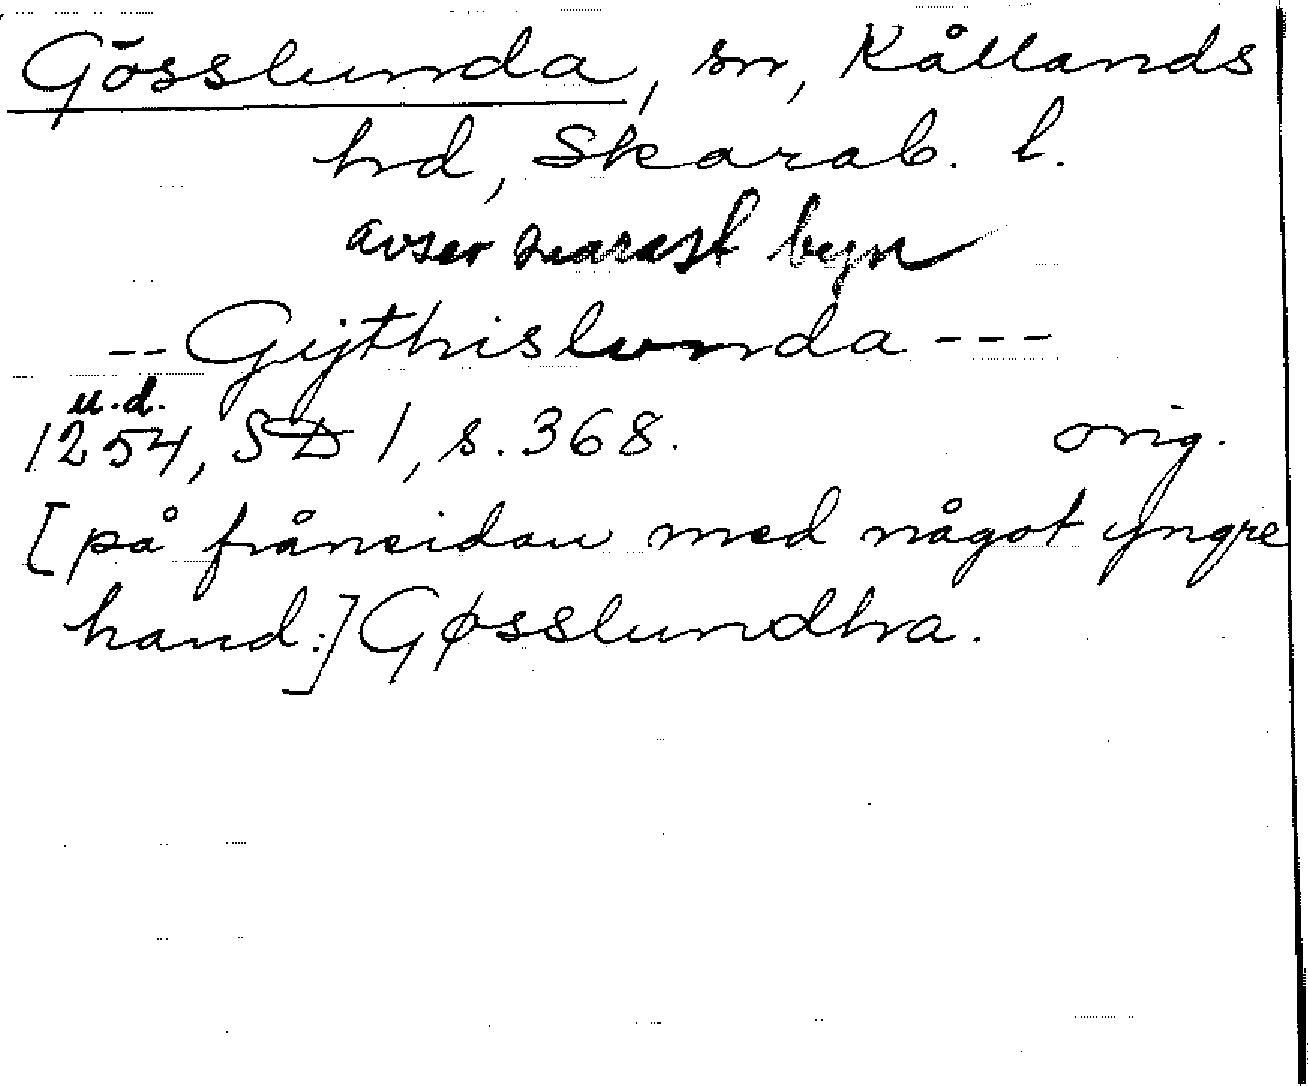 Gösslunda, sn, Kållands
hd, Skarab. l.
avser närmast byn
-- Gijthislunda ---
u.d.
1254, SD 1, s. 368. orig.
[på frånsidan med något yngre
hand:] Gøsslundha.